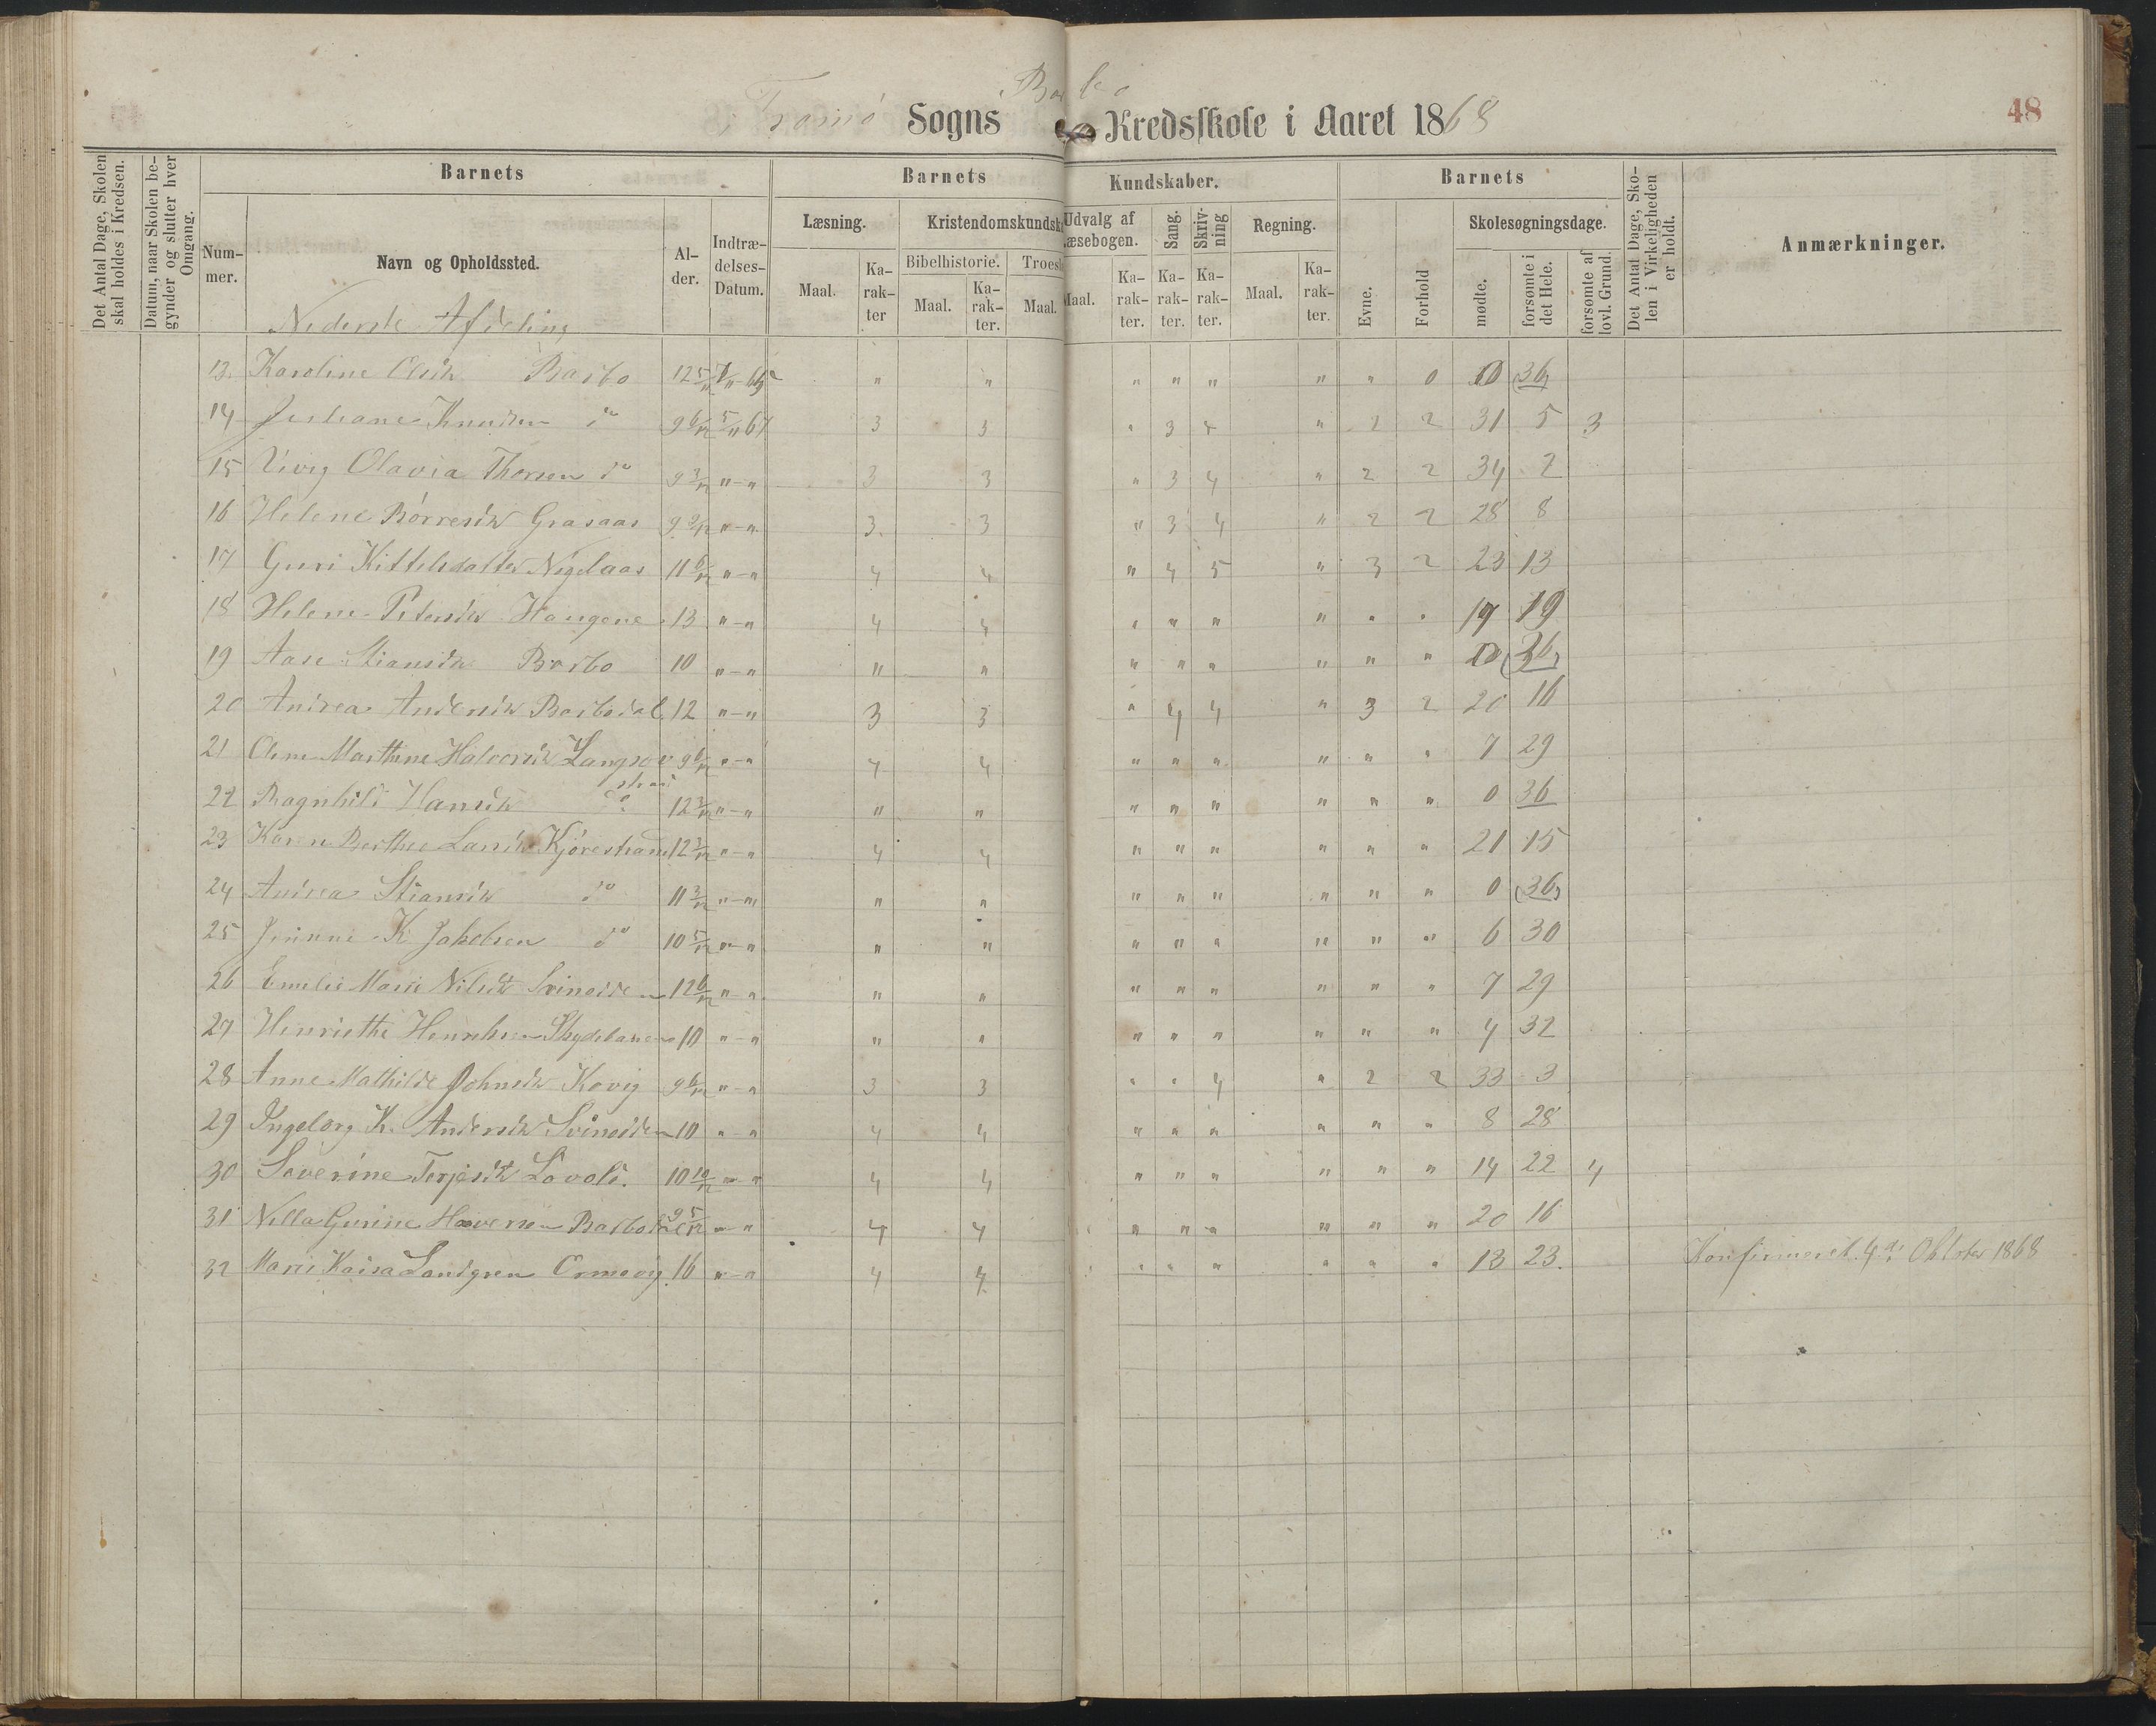 Barbo
Tromö Sogns Kredsskole i Aaret 1868
48
Det Antal Dage, Skolen skal holdes i Kredsen.
Datum, naar Skolen begynder og slutter hver Omgang.
Barnets
Barnets
Kundskaber.
Barnets
Det Antal Dage, Skolen i Virkeligheden er holdt.
Anmærkninger.
Nummer.
Navn og Opholdssted.
Alder.
Indtrædelses-Datum.
Læsning.
Kristendomskundsk
Udvalg af
æsebogen.
Sang.
Skrivning
Regning.
Skolesøgningsdage.
Bibelhistorie.
Troes
Maal.
Karakter
Maal.
Karakter.
Maal.
Maal.
Karakter.
Karakter.
Karakter.
Maal.
Karakter.
Evne.
Forhold
mødte.
forsømte i det Hele.
forsømte af lovl. Grund.
Nederste Afdeling
13. Karoline Olsdt Barbo 12 5/12 " " " " " " " 0 0 36
14 Knudsen do 9 6/12 5/11 67 3 3 " 3 4 " 2 2 31 5 3
15 Olavia Thorsen do 9 3/12 "-" 3 3 " 3 4 " 2 2 34 2
16 Helene Börresdt Grasaas 9 2/12 "-" 3 3 " 3 4 " 2 2 28 8
17 Guri Kittelsdatter 11 6/12 "-" 4 4 " 4 5 " 3 2 23 13
18 Helene Petersdt Haugene 13 "-" 4 4 " " " " " " 17 19
19 Aase Stiansdt Barbo 10 "-" " " " " " " " " 0 36
20 Andrea Andersdt Barbodal 12 "-" 3 3 " 4 4 " 3 2 20 16
21 Olene Marthine Halvorsdt 9 6/12 "-" 4 4 " " " " " " 7 29
22 Ragnhild Hansdt do 12 3/12 "-" " " " " " " " " 0 36
23 Karen Berthee Larsdt Kjörestrand 12 3/12 "-" 4 4 " " " " " " 21 15
24 Andrea Stiansdt do 11 3/12 "-" " " " " " " " " 0 36
25 K Jakobsen do 10 5/12 "-" " " " " " " " " 6 30
26 Emelie Marie Nilsdt Svinodden 12 6/12 "-" " " " " " " " " 7 29
27 Henriethe Henriksen Skydebanen 10 "-" " " " " " " " " 4 32
28 Anne Mathilde Johnsdt Kovig 9 6/12 "-" 3 3 " " 4 " 2 2 33 3
29 Ingeborg K. Andersdt Svinodden 10 "-" 4 4 " " " " " " 8 28
30 Severine Terjesdt Lovold. 10 10/12 "-" 4 4 " " " " " " 14 22 4
31 Nella Gurine Haversen 9 5/12 "-" 4 4 " " " " " " 20 16
32 Marie Kaisa Landgren Ormevig. 16 "-" 4 4 " " " " " " 13 23. Konfirmeret 4de Oktober 1868